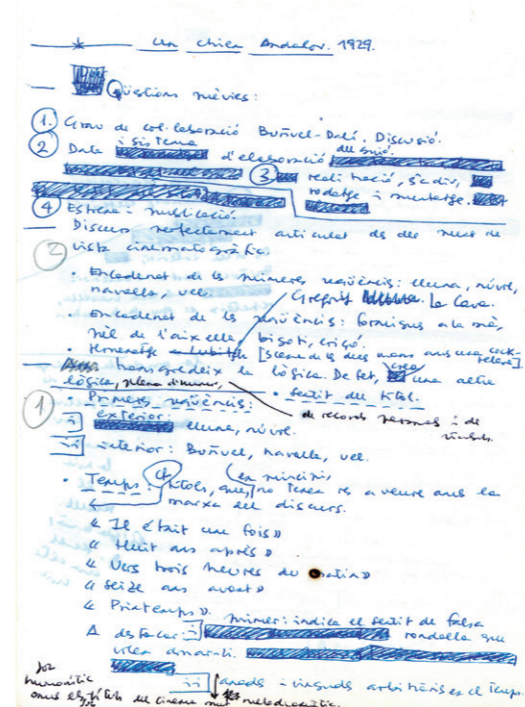 Un chien Andalou. 1929.
Qüestions prèvies:
1. Grau de col·laboració Buñuel-Dalí. Discusió.
2 Data i sistema d'elaboració del guió.
3 realització, s'c div,
rodatge i muntatge.
4 Estrena i publicació.
Discurs perfectament articulat des del punt de
vista cinematogràfic.
2
• Encadenat de les primeres seqüències: lluna, núvol,
navalla, ull.
Gregris La Cava.
encadenat de les seqüències: formigues a la mà,
pèl de l'aixella, bigoti, eriçó.
• Homenatge a Lubitsch [escena de les dues mans amb una cocktelera].
transgredeix la lògica. De fet, crea una altra
lògica, plena d'humor, • sentit del títol.
de records personals i de
1
• Primeres seqüències:
i exterior: lluna, núvol.
ii interior: Buñuel, navalla, ull.
• Temps: títols, que, en principi, no tenen res a veure amb la
marxa del discurs.
« Il était une fois»
« Huit ans après»
« Vers trois heures du matin»
« Seize ans avant»
« Printemps».
A destacar: i primer: indica el sentit de falsa
rondalla que
volen donar-li.
ii anades i vingudes arbitràries en el temps.
joc
humorístic
amb els títols del cinema mut melodramàtic.